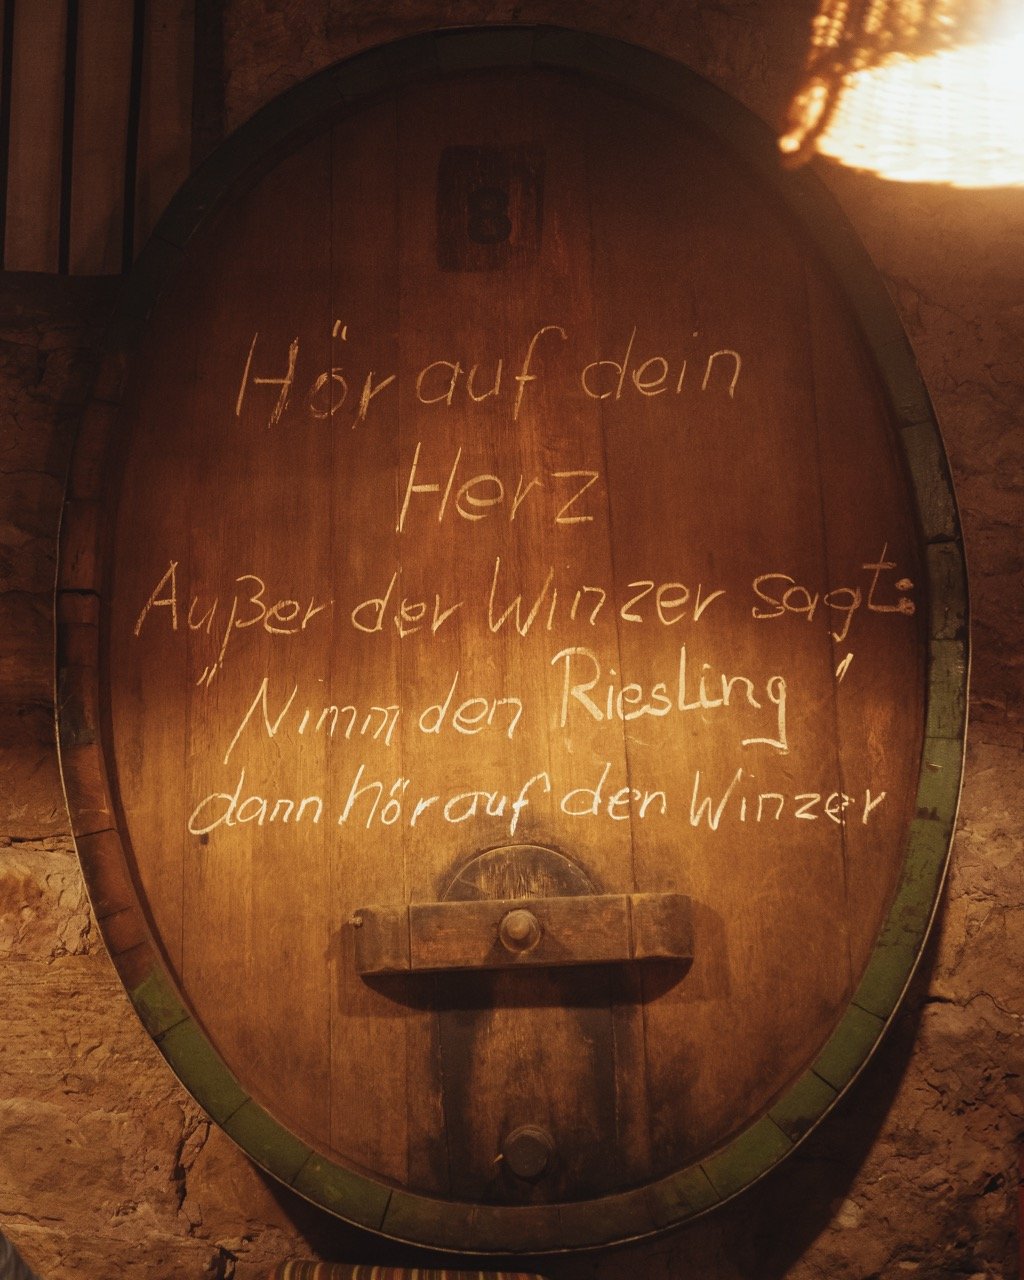 8
Hör auf dein
Herz
Außer der Winzer sagt:
"Nimm den Riesling"
dann hör auf den Winzer